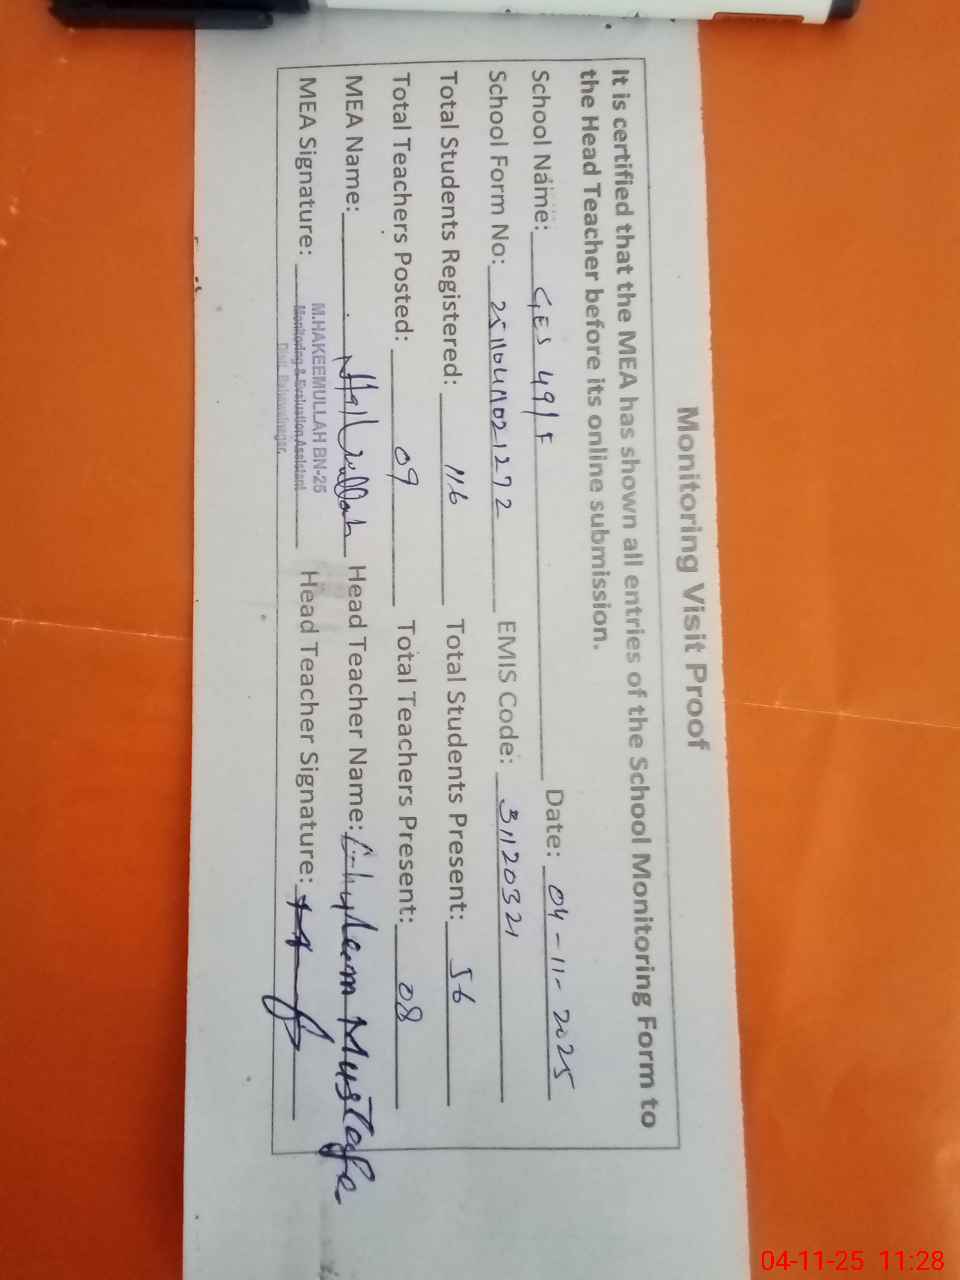 Monitoring Visit Proof
It is certified that the MEA has shown all entries of the School Monitoring Form to
the Head Teacher before its online submission.
School Name: GES 49/F Date: 04-11-2025
School Form No: EMIS Code: 31120321
Total Students Registered: 116 Total Students Present: 56
Total Teachers Posted: 09 Total Teachers Present: 08
MEA Name: Head Teacher Name: Ghulam Mustafa
MEA Signature: Head Teacher Signature:
M.HAKEEMULLAH BN-25
Monitoring & Evaluation Assistant
Distt. Bahawalnagar
04-11-25 11:28